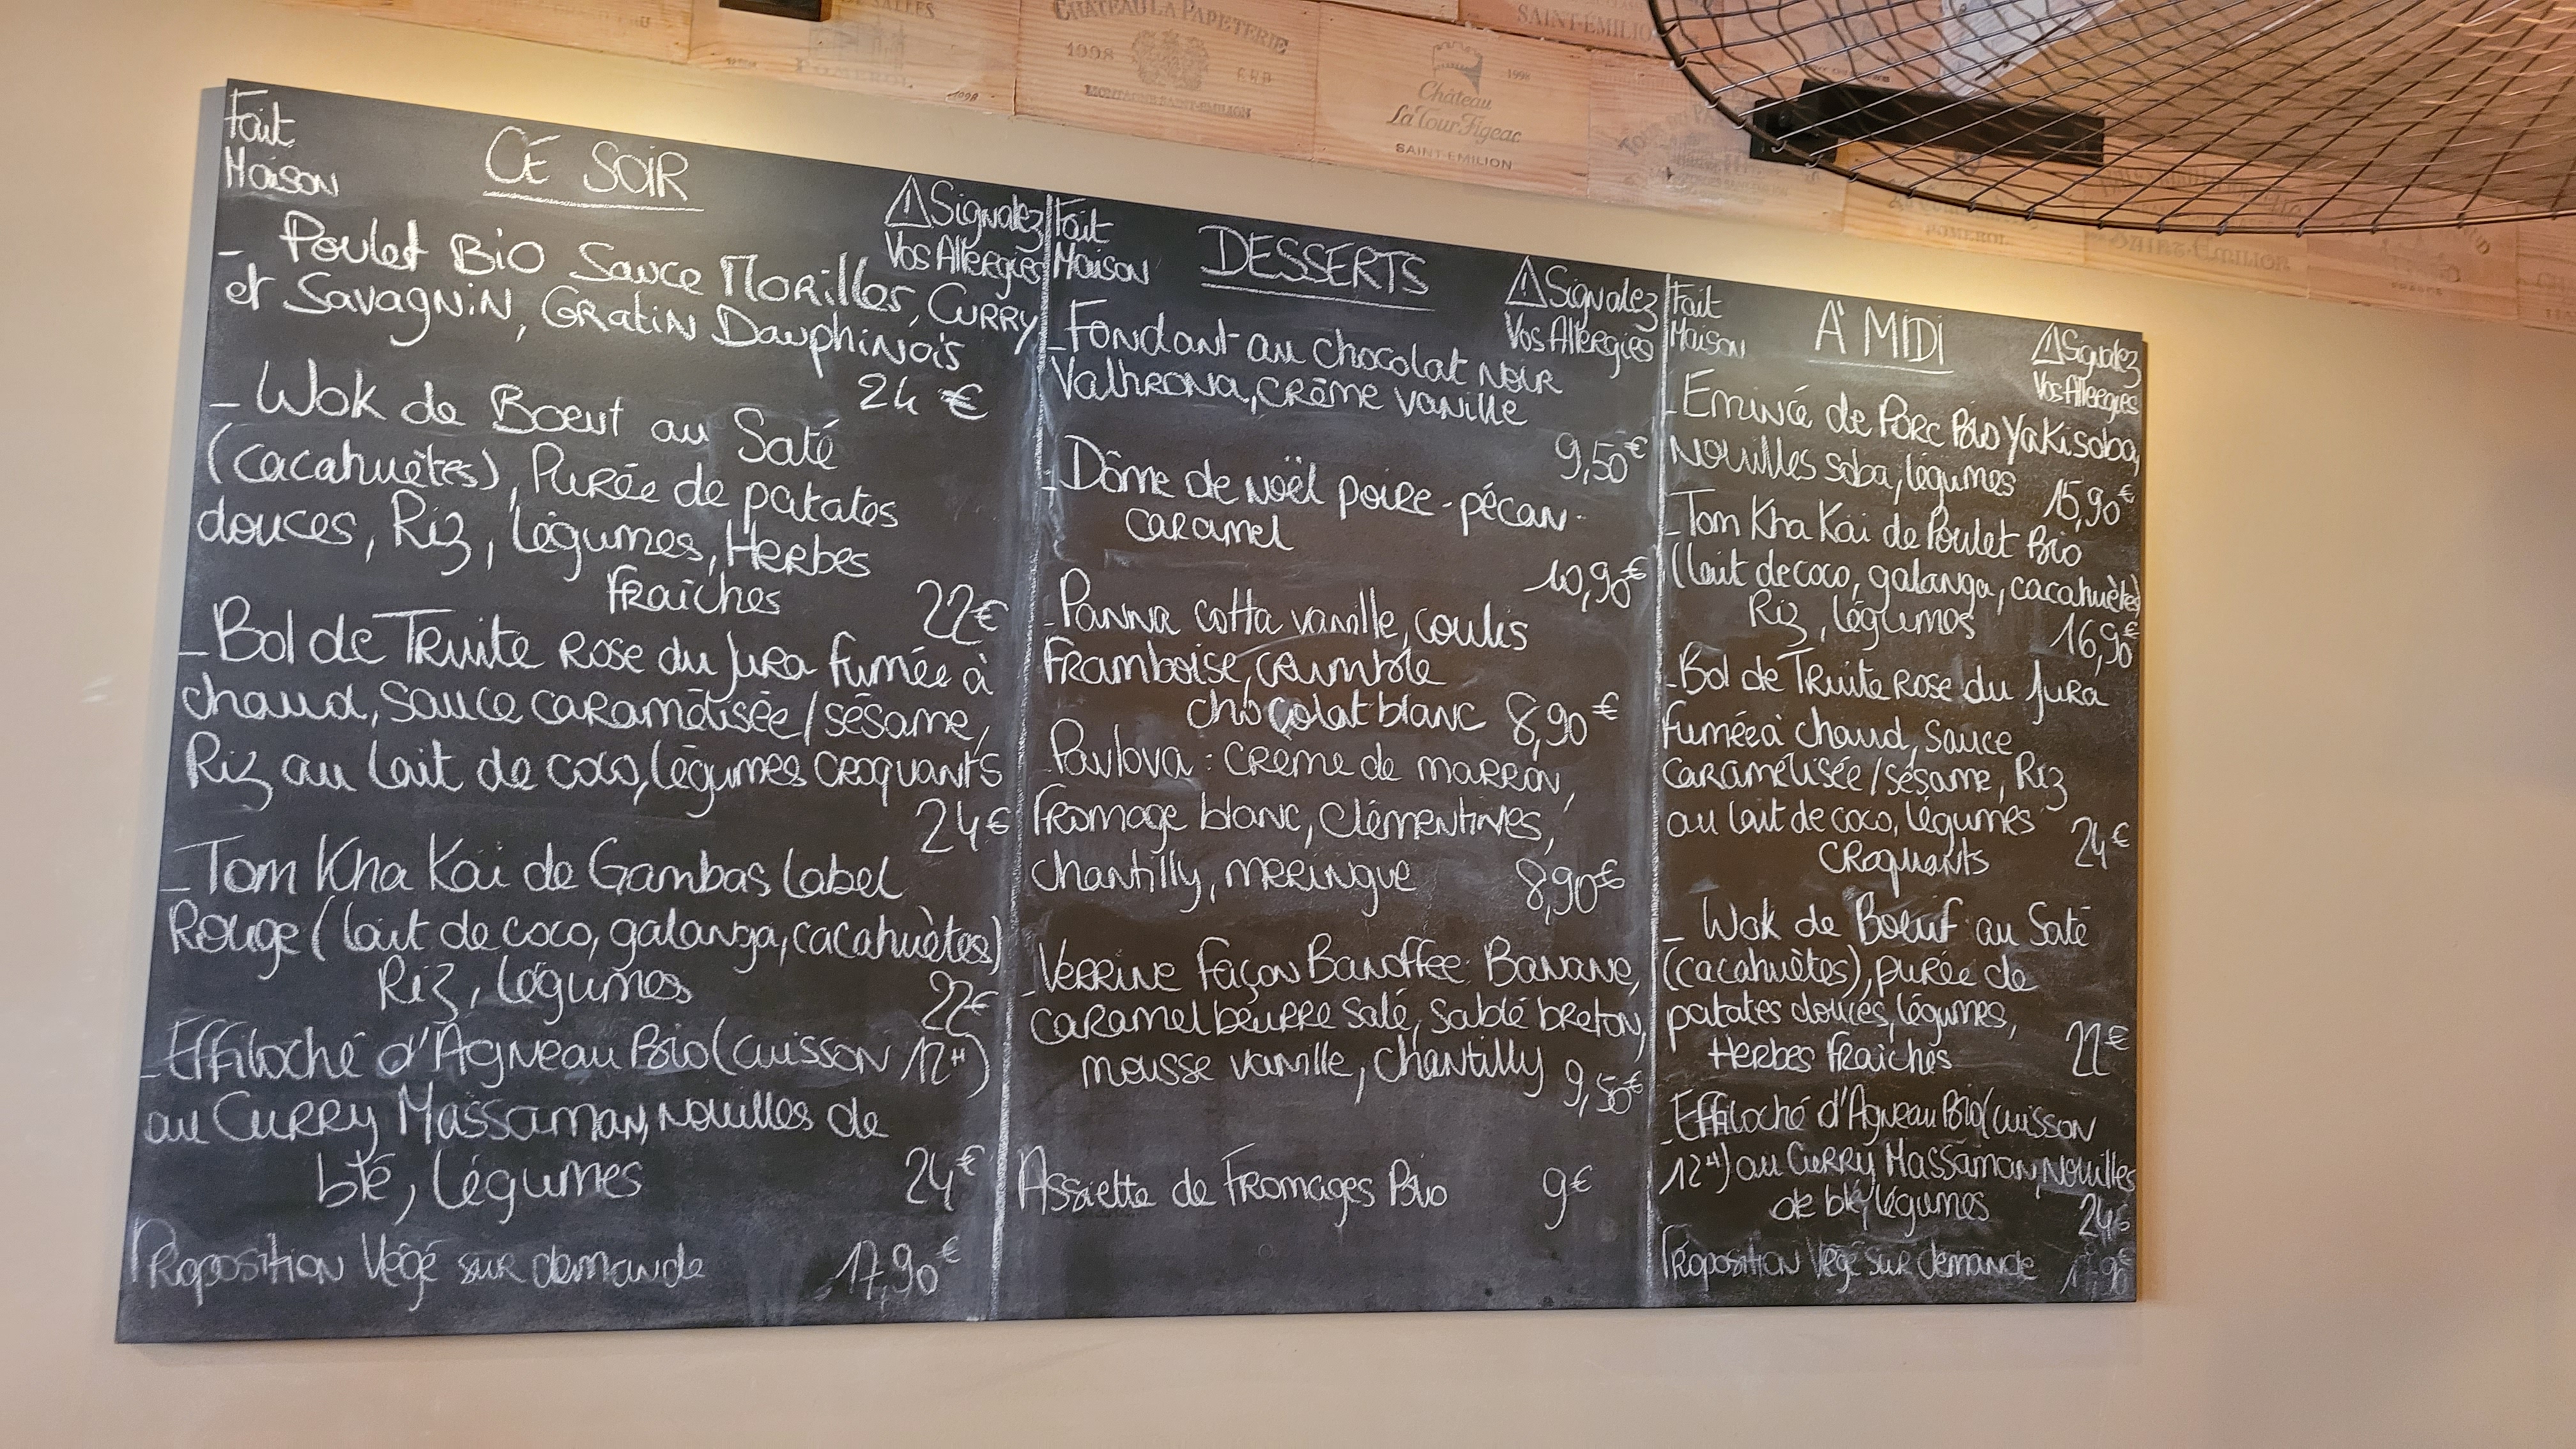 CHATEAU LA PAPETERIE
1998
MONTAGNE SAINT-EMILION
1998
Château
La Tour Figeac
SAINT-EMILION
SAINT-EMILION
POMEROL
1998
Fait
Maison
CE SOIR
⚠Signalez
Vos Allergies
- Poulet BiO Sauce Morilles, Curry
et Savagnin, Gratin Dauphinois
24 €
- Wok de Boeuf au Saté
(cacahuètes), Purée de patates
douces, Riz, légumes, Herbes
fraîches 22€
- Bol de Truite Rose du Jura fumée à
chaud, sauce caramélisée/sésame,
Riz au lait de coco, légumes croquants
24€
- Tom Kha Kaï de Gambas Label
Rouge (lait de coco, galanga, cacahuètes)
Riz, légumes 22€
- Effiloché d'Agneau Bio (cuisson 12H)
au Curry Massaman, Nouilles de
blé, légumes 24€
Proposition Végé sur demande 17,90€
Fait
Maison
DESSERTS
⚠Signalez
Vos Allergies
- Fondant au chocolat noir
Valhrona, crème vanille
9,50€
- Dôme de noël poire - pécan -
caramel
10,90€
- Panna cotta vanille, coulis
framboise, crumble
chocolat blanc 8,90€
- Pavlova : crème de marron,
fromage blanc, clémentines,
chantilly, meringue 8,90€
- Verrine façon Banoffee: Banane,
caramel beurre salé, sablé breton,
mousse vanille, chantilly 9,50€
Assiette de Fromages Bio 9€
Fait
Maison
A MIDI
⚠Signalez
Vos Allergies
- Emincé de Porc Bio Yakisoba,
Nouilles soba, légumes 15,90€
- Tom Kha Kaï de Poulet Bio
(lait de coco, galanga, cacahuètes)
Riz, légumes 16,90€
- Bol de Truite rose du Jura
fumée à chaud, sauce
caramélisée/sésame, Riz
au lait de coco, légumes
croquants 24€
- Wok de Boeuf au Saté
(cacahuètes), purée de
patates douces, légumes,
Herbes fraîches 22€
- Effiloché d'Agneau Bio (cuisson
12H) au Curry Massaman, Nouilles
de blé, légumes 24€
Proposition Végé sur demande